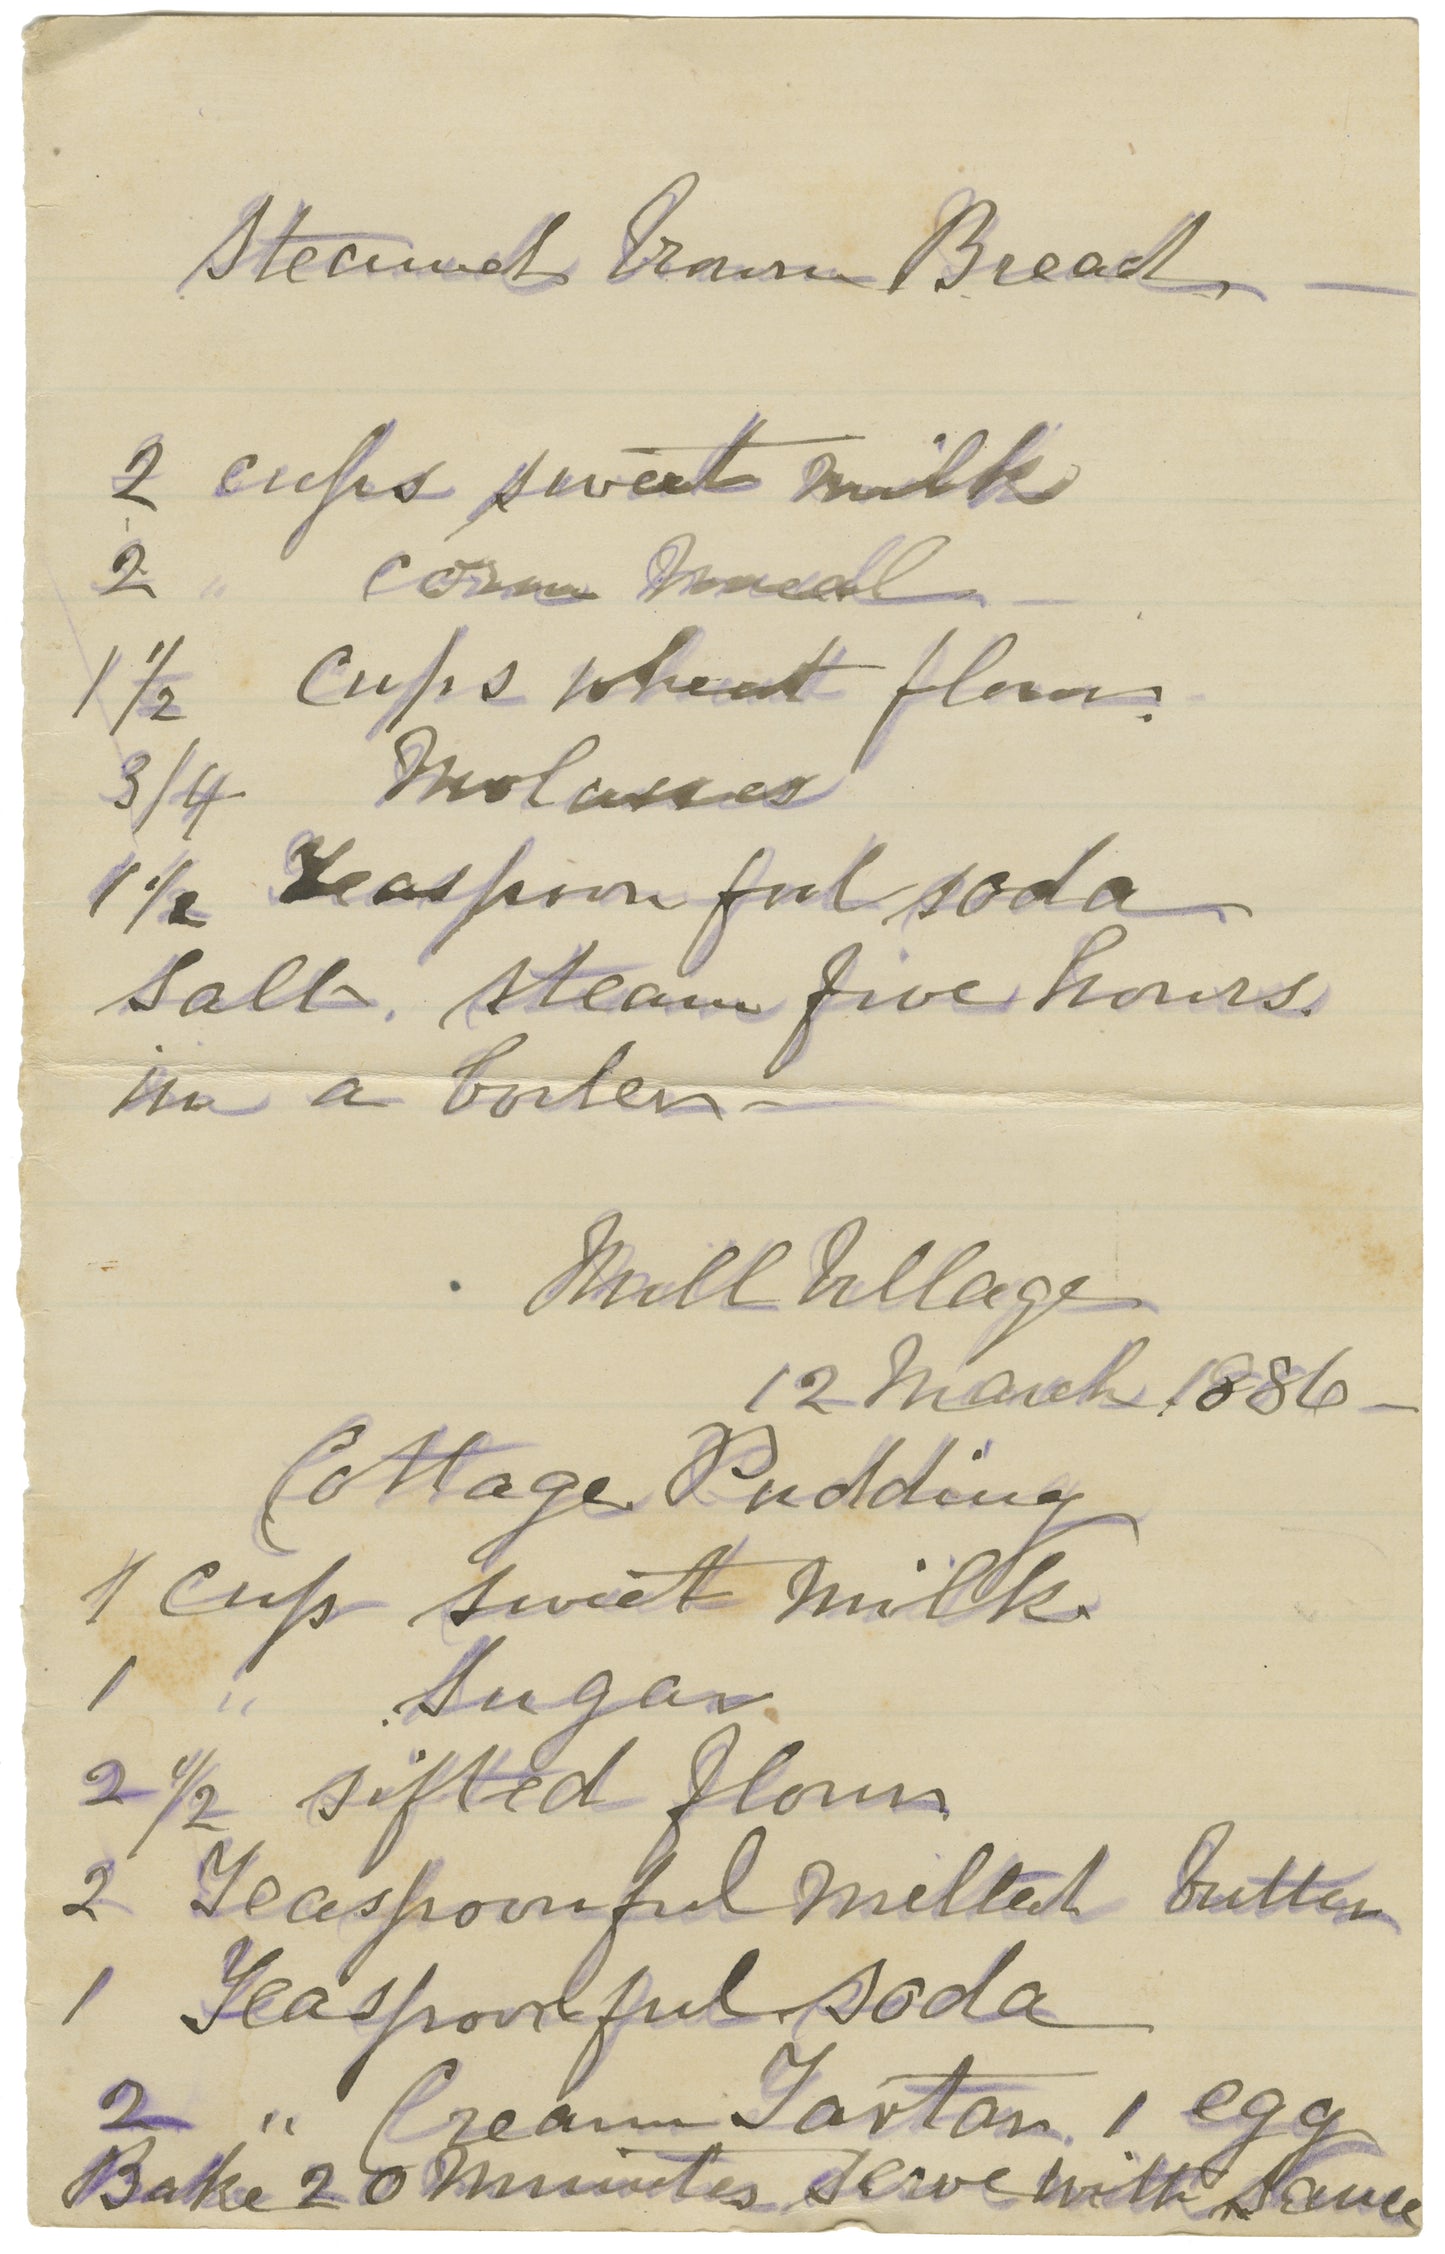 Steamed brown Bread —
2 cups sweet milk
2 " corn meal —
1 1/2 cups wheat flour.
3/4 Molasses
1 1/2 Teaspoon ful soda
Salt. steam five hours.
in a boiler —
Mill Village
12 March 1886 —
Cottage Pudding
1 cup sweet milk.
1 " Sugar
2 1/2 sifted flour
2 Teaspoonful melted butter
1 Teaspoonful soda
2 " Cream Tartar. 1 egg
Bake 20 minutes serve with sauce